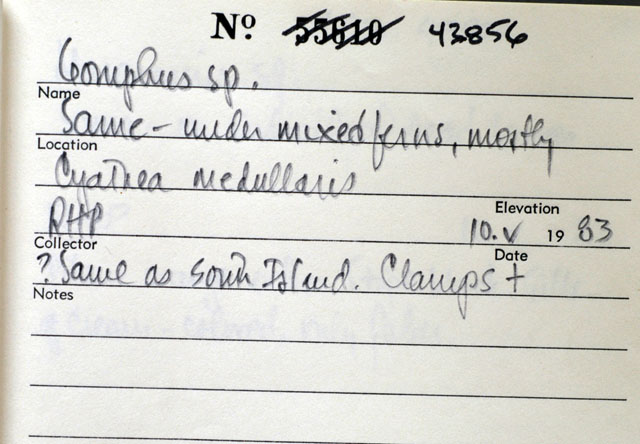 Nº 55610 43856
Gomphus sp.
Name
Same - under mixed ferns, mostly
Location
Cyathea medullaris
Elevation
RHP 10.V 1983
Collector Date
? Same as South Island. Clamps +
Notes